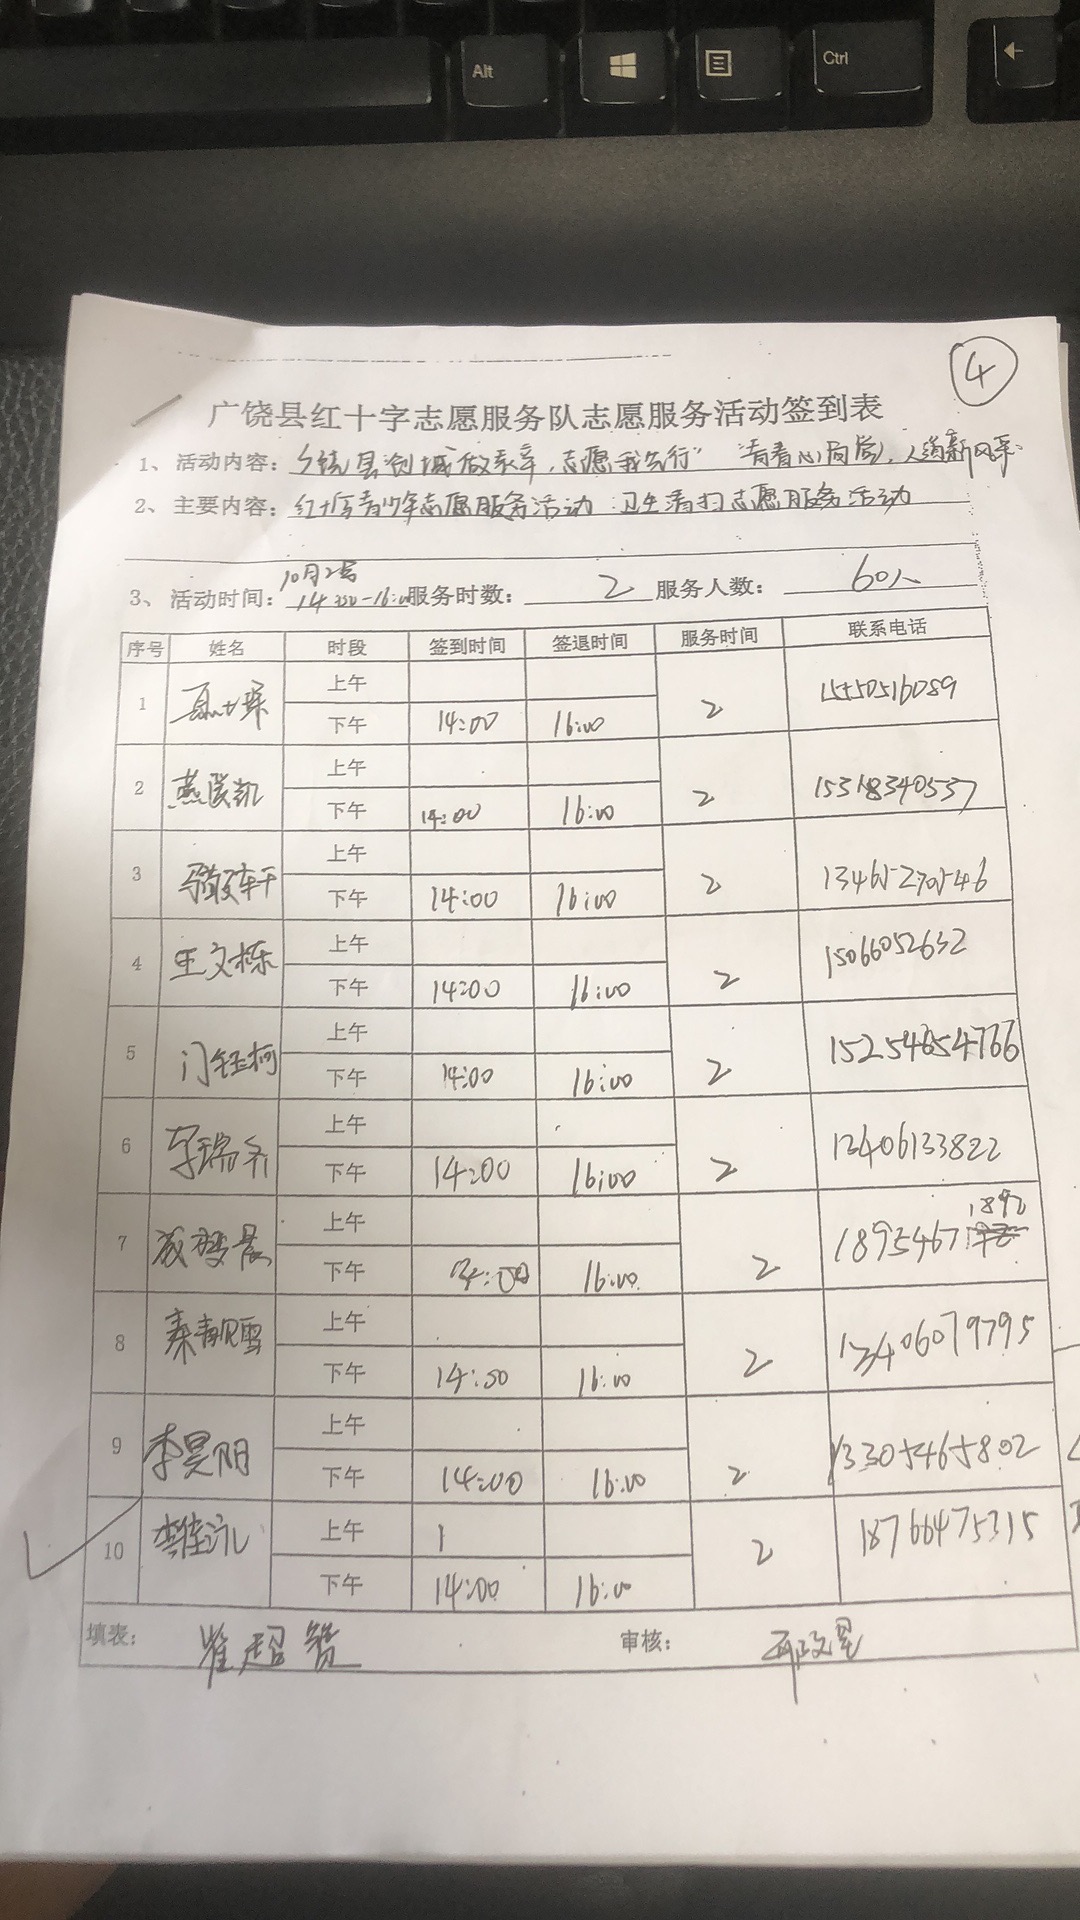 Alt
Ctrl
4
广饶县红十字志愿服务队志愿服务活动签到表
1、活动内容：广饶县创城做表率，志愿我先行"
2、主要内容：红十字青少年志愿服务活动 卫生清扫志愿服务活动
10月2号
3、活动时间： 服务时数： 2 服务人数： 60人
序号 姓名 时段 签到时间 签退时间 服务时间 联系电话
1 上午
下午 14:00 16:00 2 15505516089
2 上午
下午 14:00 16:00 2 15318340537
3 上午
下午 14:00 16:00 2 13465270546
4 王文栋 上午
下午 14:00 16:00 2 15066052632
5 门钰柯 上午
下午 14:00 16:00 2 15254654766
6 上午
下午 14:00 16:00 2 13406133822
7 上午
下午 16:00 2 18954671892
8 秦靓雪 上午
下午 16:00 2 13406079795
9 李昊阳 上午
下午 14:00 16:00 2 13305465802
10 上午
下午 14:00 16:00 2 18766475315
填表： 崔超贤 审核：